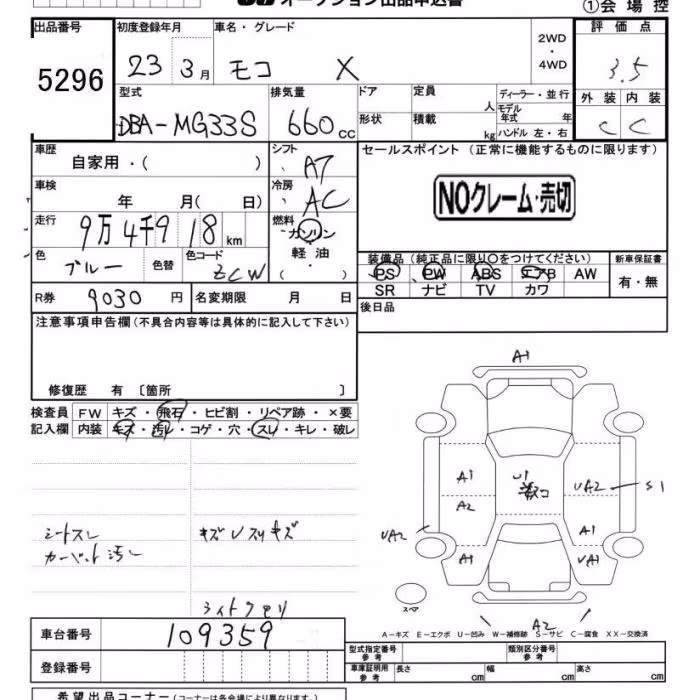 オークション出品申込書
①会場控
出品番号
5296
初度登録年月
23 3月
車名・グレード
モコ X
2WD
・
4WD
評価点
3.5
外装 内装
C C
型式
DBA-MG33S
排気量
660 cc
ドア
形状
定員 人
積載 kg
ディーラー・並行
モデル
年式 年
ハンドル 左・右
車歴
自家用・( )
シフト
AT
車検
年 月( 日)
冷房
AC
走行
9万4千918 km
燃料
ガソリン
軽油
( )
色
ブルー
色替
色コード
ZCW
R券 9030 円
名変期限 月 日
セールスポイント (正常に機能するものに限ります)
NOクレーム・売切
装備品 (純正品に限り○をつけてください)
新車保証書
PS PW ABS エアB AW
有・無
SR ナビ TV カワ
後日品
注意事項申告欄 (不具合内容等は具体的に記入して下さい)
修復歴 有 〔箇所 〕
検査員 FW キズ・飛石・ヒビ割・リペア跡・×要
記入欄 内装 キズ・汚レ・コゲ・穴・スレ・キレ・破レ
シートスレ
カーペット汚レ
キズUスリキズ
ライトクモリ
A1
A1
A2
U1
UA2
S1
UA2
A1
A1
UA1
A2
スペア
A-キズ E-エクボ U-凹み W-補修跡 S-サビ C-腐食 XX-交換済
車台番号 109359
登録番号
型式指定番号
参考
類別区分番号
参考
車庫証明用
参考
長さ cm 幅 cm 高さ cm
希望出品コーナー (コーナーは各会場により異なります。)